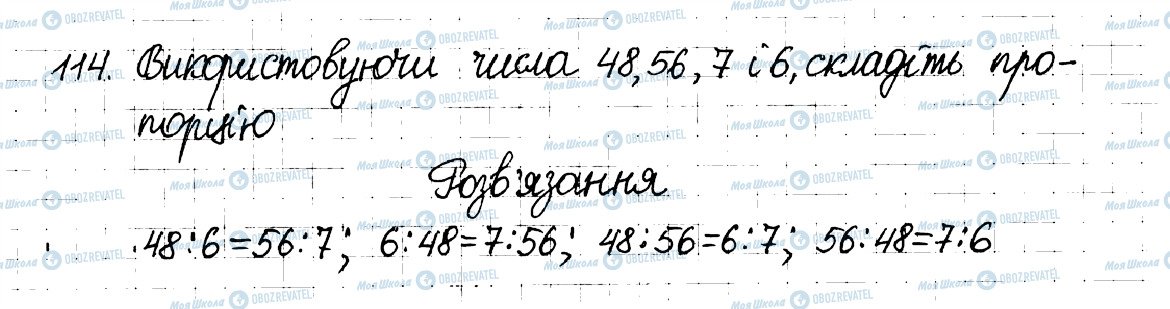 114. Використовуючи числа 48, 56, 7 і 6, складіть про-
порцію
Розв'язання
48:6=56:7; 6:48=7:56; 48:56=6:7; 56:48=7:6